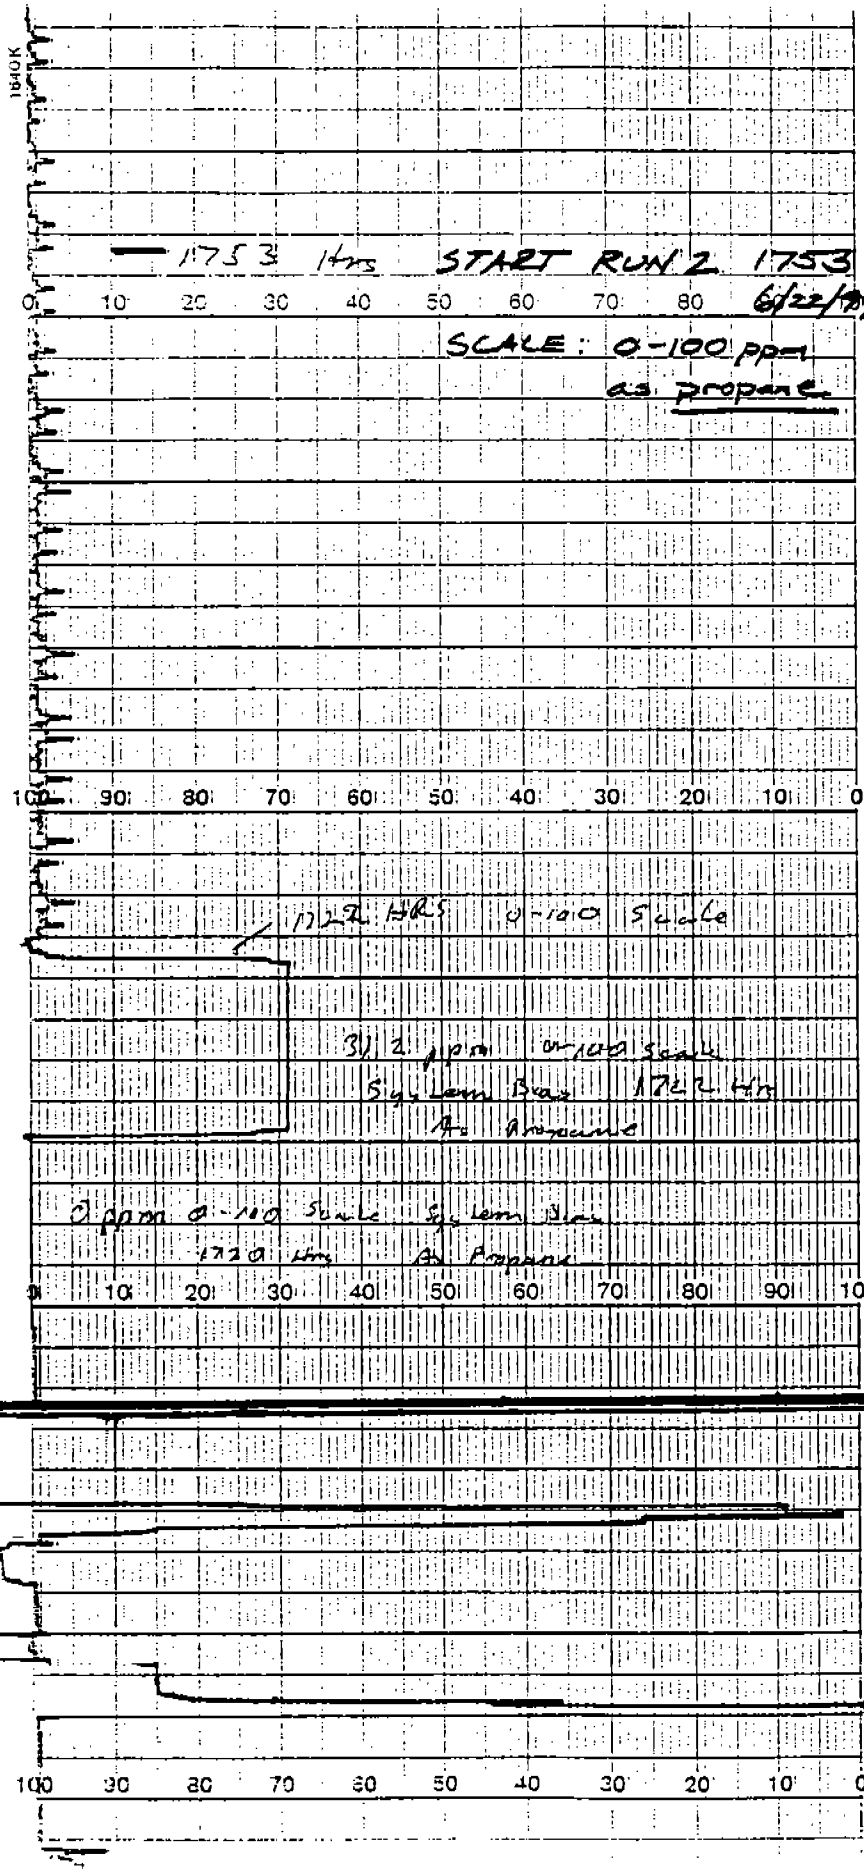 1840K
1753 Hrs START RUN 2 1753
0 10 20 30 40 50 60 70 80 6/22/
SCALE: 0-100 ppm
as propane
100 90 80 70 60 50 40 30 20 10 0
1722 HRS 0-100 Scale
31.2 ppm 0-100 Scale
System Bias 1722 Hrs
As Propane
0 ppm 0-100 Scale System Bias
1720 Hrs As Propane
0 10 20 30 40 50 60 70 80 90 10
100 90 80 70 60 50 40 30 20 10 0